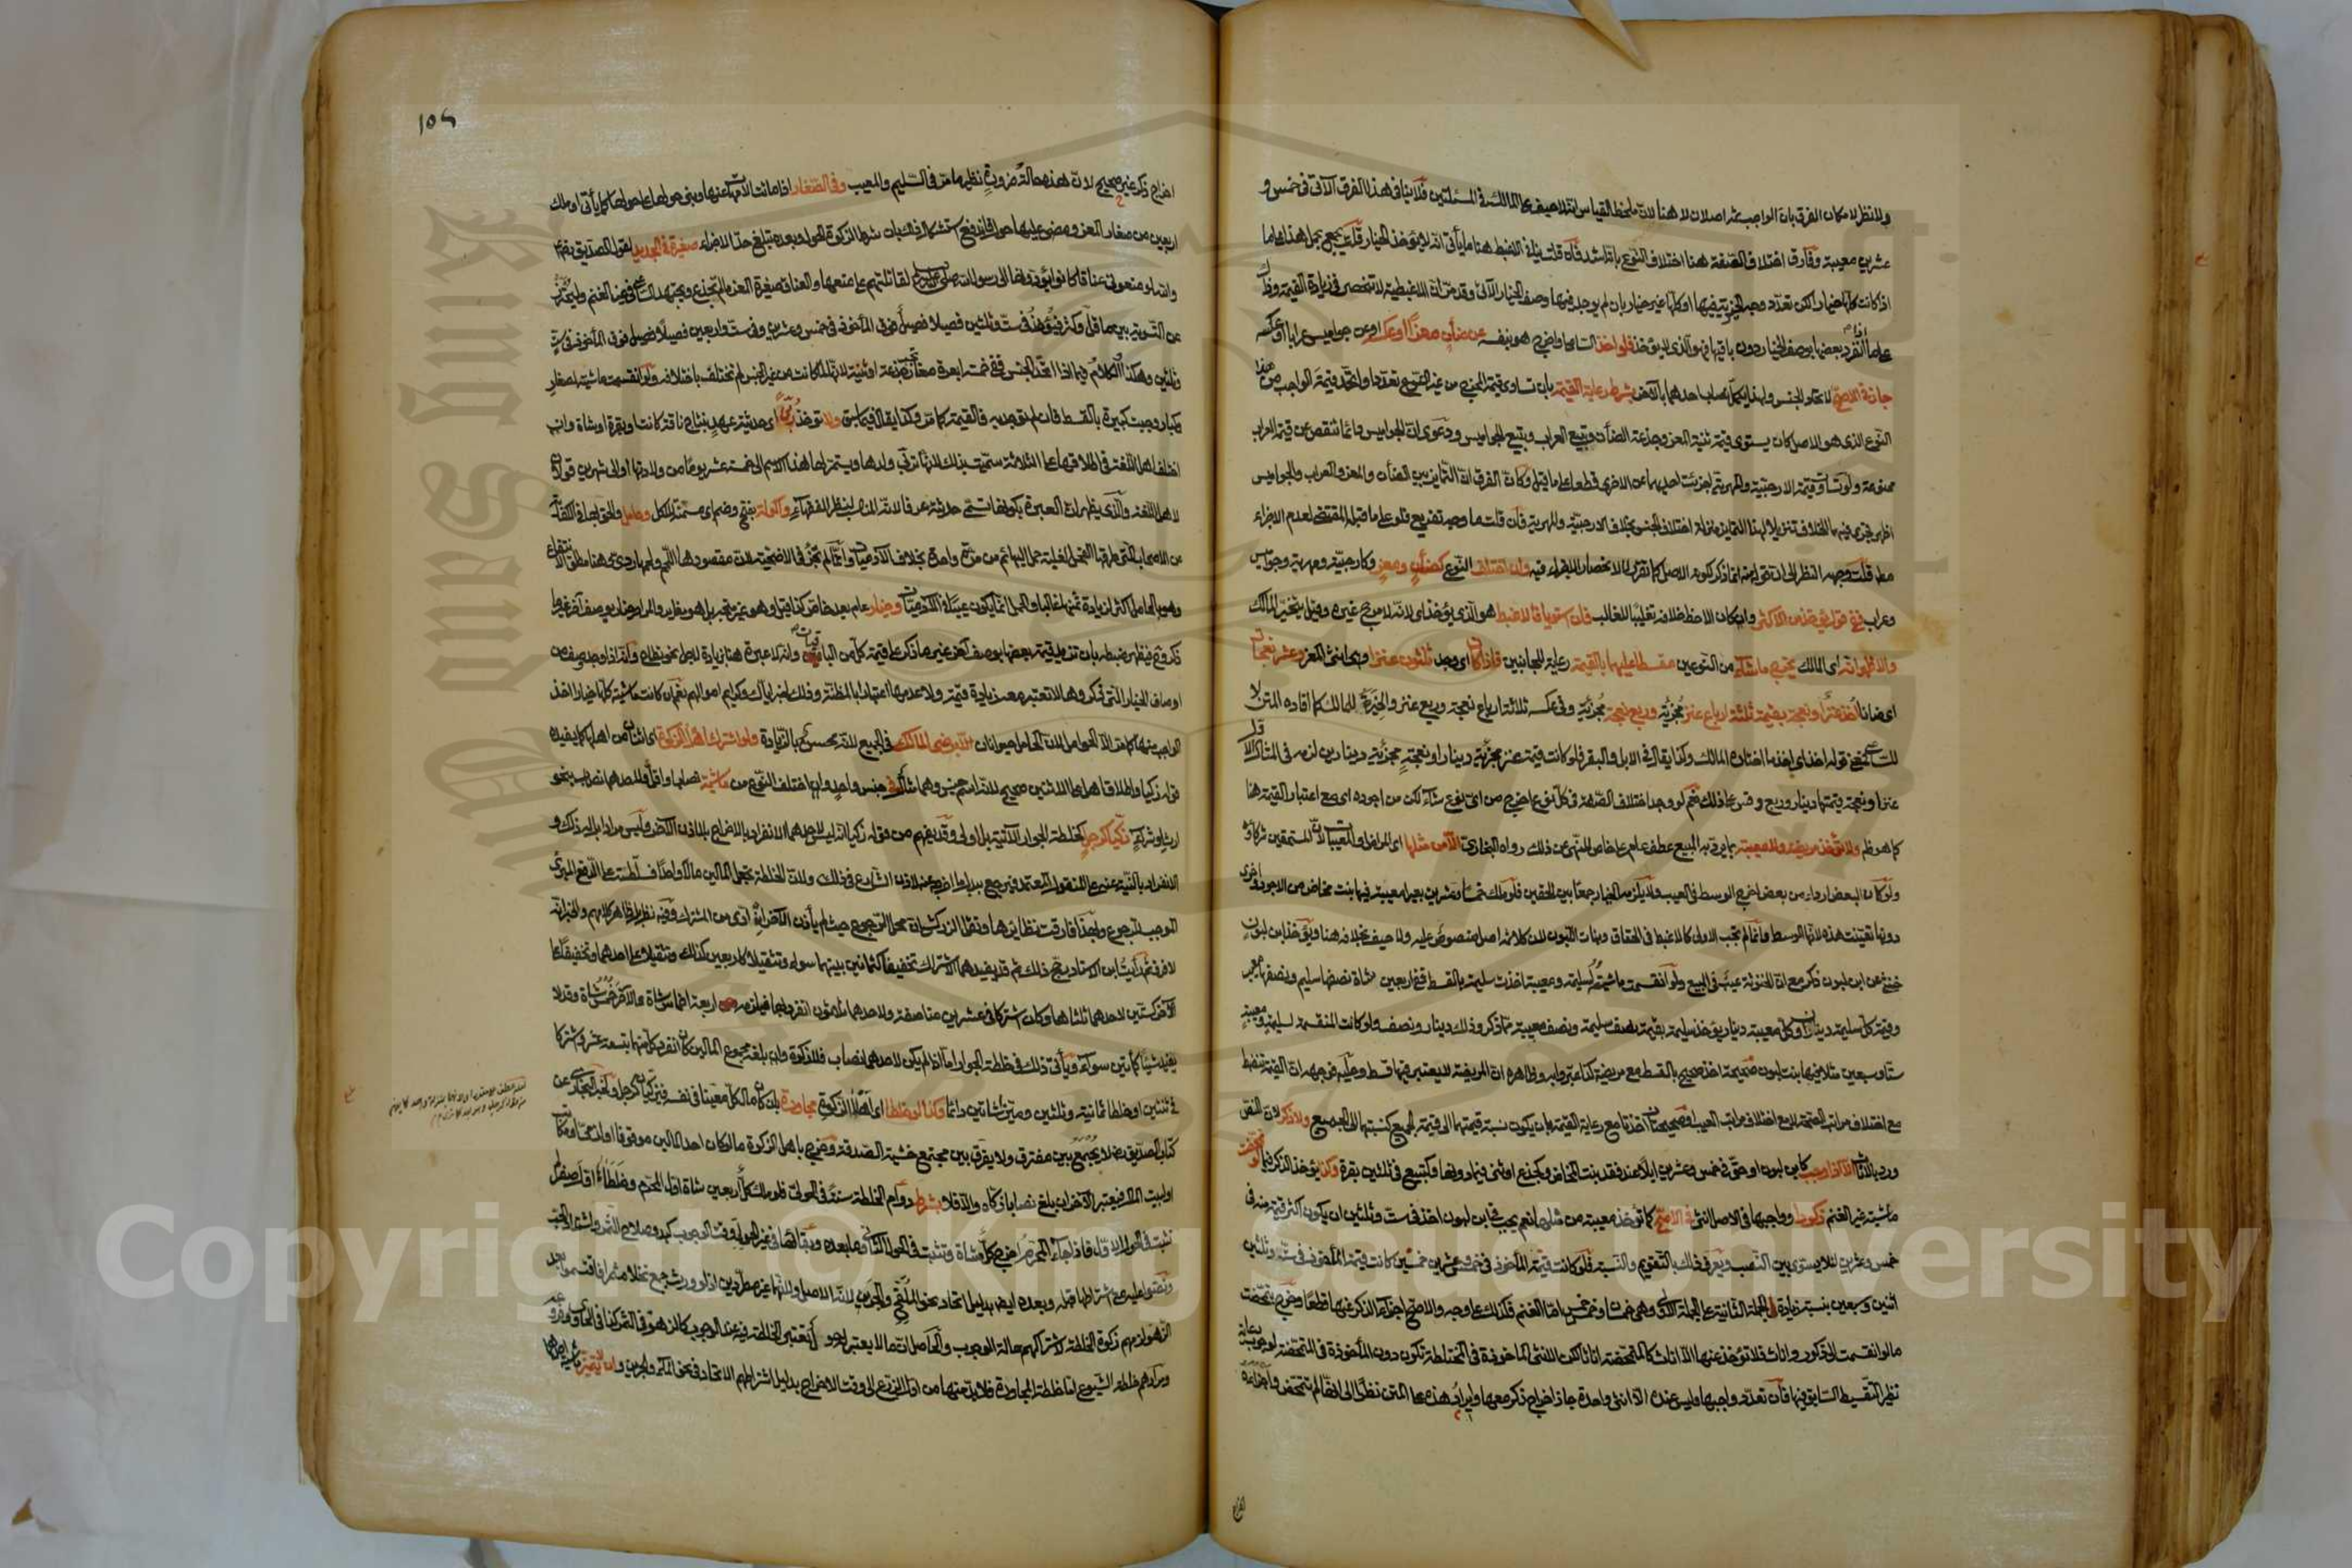 ولا نظر لامكان الفرق بان الواجب ثم اصلان لا هنا لان ملحظ القياس انه لا حيف على المالك في المسئلتين فلا ينافي هذا الفرق الآتي في خمس و
عشرين معيبة وفارق اختلاف الصفة هنا اختلاف النوع بانه اشد فان قلت ينافي الاغبط هنا ما يأتي انه لا يؤخذ الخيار قلت يجمع بحمل هذا على ما
اذا كانت كلها خيارا لكن تعدد وجه الخيرية فيها او كلها غير خيار بان لم يوجد فيها وصف الخيار الآتي وقد مر ان الاغبطية لا تنحصر في زيادة القيمة وذاك
على ما اذا انفرد بعضها بوصف الخيار دون باقيها فهو الذي لا يؤخذ فلو اخذ الساعي او اخرج هو بنفسه عن ضأن معزا او عكسه او عن جواميس عرابا او عكسه
جاز في الاصح لاتحاد الجنس ولهذا يكمل نصاب احدهما بالآخر بشرط رعاية القيمة بان تساوي قيمة المخرج من غير النوع تعدد او اتحد قيمة الواجب من هذا
النوع الذي هو الاصل كان يستوي قيمة ثنية المعز وجذعة الضأن وتبيع العراب وتبيع الجواميس ودعوى ان الجواميس دائما تنقص عن قيمة العراب
ممنوعة ولو تساوت قيمة الارحبية والمهرية اجزئت احديهما عن الاخرى قطعا على ما قيل وكأن الفرق ان التمايز بين الضأن والمعز والعراب والجواميس
اظهر فجرى فيهما الخلاف تنزيلا لهذا التمايز منزلة اختلاف الجنس بخلاف الارحبية والمهرية فان قلت ما وجه تفريع فلو على ما قبله المقتضي لعدم الاجزاء
مطلقا قلت وجهه النظر الى ان تقويمه انما ذكر لكونه الاصل كما تقرر لا لانحصار الاجزاء فيه وان اختلف النوع كضأن ومعز وكارحبية ومهرية وجواميس
وعراب ففي قول يؤخذ من الاكثر وان كان الاحظ خلافه تغليبا للغالب فان استويا فالاغبط هو الذي يؤخذ اي لانه لا مرجح غيره وقيل يتخير المالك
والاظهر انه اي المالك يخرج ما شاء من النوعين مقسطا عليهما بالقيمة رعاية للجانبين فاذا كان اي وجد ثلثون عنزا وهي انثى المعز وعشر نعجات
اي ضانا اخذ عنزا او نعجة بقيمة ثلثة ارباع عنز مجزئة وربع نعجة مجزئة وفي عكسه ثلاثة ارباع نعجة وربع عنز والخيرة للمالك كما افاده المتن لا
للساعي فمعنى قوله اخذ اي اخذ ما اختاره المالك وكذا يقال في الابل والبقر فلو كانت قيمة عنز مجزئة دينارا ونعجة مجزئة دينارين لزمه في المثال الاول
عنز او نعجة قيمتها دينار وربع وقس على ذلك نعم لو وجد اختلاف الصفة في كل نوع اخرج من اي نوع شاء لكن من اجوده اي مع اعتبار القيمة هنا
كما هو ظاهر ولا تؤخذ مريضة ولا معيبة بما يرد به المبيع عطف عام على خاص للنهي عن ذلك رواه البخاري الا من مثلها اي المراض والمعيبات لان المستحقين شركاؤه
ولو كان البعض اردأ من بعض اخرج الوسط في العيب ولا يلزمه الخيار جمعا بين الحقين فلو ملك خمسا وعشرين بعيرا معيبة فيها بنت مخاض من الاجود واخرى
دونها تعينت هذه لانها الوسط وانما لم تجب الاولى كالاغبط في الحقاق وبنات اللبون لان كلا ثم اصل منصوص عليه ولا حيف بخلافه هنا ويؤخذ ابن لبون
خنثى عن ابن لبون ذكر مع ان الخنوثة عيب في المبيع ولو انقسمت ماشيته لسليمة ومعيبة اخذت سليمة بالقسط ففي اربعين شاة نصفها سليم ونصفها معيب
وقيمة كل سليمة ديناران وكل معيبة دينار يؤخذ سليمة بقيمة نصف سليمة ونصف معيبة مما ذكر وذلك دينار ونصف ولو كانت المنقسمة لسليمة ومعيبة
ستا وسبعين مثلا فيها بنت لبون صحيحة اخذ صحيح بالقسط مع مريضة كذا عبر به وظاهره ان المريضة لا يعتبر فيها قسط وعليه فوجهه ان القيمة تنضبط
مع اختلاف مراتب الصحة لا مع اختلاف مراتب العيب او صحيحتان اخذتا مع رعاية القيمة بان يكون نسبة قيمتها الى قيمة الجميع كنسبتها الى الجميع ولا ذكر لان النص
ورد بالاناث الا اذا وجب كابن لبون او حق في خمس وعشرين ابلا عند فقد بنت المخاض وكجذع او ثني فيما دونها وكتبيع في ثلثين بقرة وكذا يؤخذ الذكر فيما لو تمحضت
ماشيته غير الغنم ذكورا وواجبها في الاصل انثى في الاصح كما تؤخذ معيبة من مثلها نعم يجب في ابن لبون اخذ في ست وثلثين ان يكون اكثر قيمة منه في
خمس وعشرين لئلا يستوي بين النصب ويعرف ذلك بالتقويم والنسبة فلو كانت قيمة المأخوذ في خمس وعشرين خمسين كانت قيمة المأخوذ في ست وثلثين
اثنين وسبعين بنسبة زيادة الجملة الثانية على الجملة الاولى وهي خمسان وخمس خمس اما الغنم فكذلك على وجه والاصح اجزاء الذكر عنها قطعا وخرج بتمحضت
ما لو انقسمت الى ذكور واناث فلا تؤخذ عنها الا الاناث كالمتمحضة اناثا لكن الانثى المأخوذة في المختلطة تكون دون المأخوذة في المتمحضة لوجوب رعاية
نظير التقسيط السابق فيها فان تعدد واجبها وليس عنده الا انثى واحدة جاز اخراج ذكر معها وايراد هذه على المتن نظرا الى انها لم تتمحض واجزاءه
اخراج
١٥٤
اخراج ذكر غير صحيح لان هذه حالة ضرورة نظير ما مر في السليم والمعيب وفي الصغار اذا ماتت الامهات عنها وبنى حولها على حولها كما يأتي او ملك
اربعين من صغار المعز ومضى عليها حول فاندفع استشكاله بان شرط الزكوة الحول وبعده تبلغ حد الاجزاء صغيرة في الجديد لقول الصديق رضي
والله لو منعوني عناقا كانوا يؤدونها الى رسول الله صلى الله عليه وسلم لقاتلتهم على منعها والعناق صغيرة المعز ما لم تجذع ويجتهد الساعي في غير الغنم وليحترز
عن التسوية بين ما قل وكثر فيؤخذ في ست وثلثين فصيلا فصيل فوق المأخوذ في خمس وعشرين وفي ست واربعين فصيلا فصيل فوق المأخوذ في ست
وثلثين وهكذا الكلام فيما اذا اتحد الجنس ففي خمسة ابعرة صغار تجب جذعة او ثنية لانها لما كانت من غير الجنس لم تختلف باختلافه ولو انقسمت ماشيته لصغار
وكبار وجبت كبيرة بالقسط فان لم توجد به فالقيمة كما مر وكذا يقال فيما سبق ولا تؤخذ ربى اي حديثة عهد بنتاج ناقة كانت او بقرة او شاة وان
اختلف اهل اللغة في اطلاقها على الثلاثة سميت بذلك لانها تربي ولدها ويستمر لها هذا الاسم الى خمسة عشر يوما من ولادتها او الى شهرين قولان
لاهل اللغة والذي يظهر ان العبرة بكونها تسمى حديثة عرفا لانه المناسب لنظر الفقهاء واكولة بفتح وضم اي مسمنة للاكل وحامل والحق بها في الكفاية
عن الاصحاب التي طرقها الفحل لغلبة حمل البهائم من مرة واحدة بخلاف الآدميات وانما لم تجز في الاضحية لان مقصودها اللحم ولحمها ردي وهنا مطلق الانتفاع
وهو بالحامل اكثر لزيادة ثمنها غالبا والحمل انما يكون عيبا في الآدميات وخيار عام بعد خاص كذا قيل وهو غير متجه بل هو مغاير والمراد وخيار بوصف آخر غير ما
ذكر وح يظهر ضبطه بان تزيد قيمة بعضها بوصف آخر غير ما ذكر على قيمة كل من الباقيات وانه لا عبرة هنا بزيادة لاجل نحو نطاح وانه اذا وجد وصف من
اوصاف الخيار التي ذكروها لا تعتبر معه زيادة قيمة ولا عدمها اعتبارا بالمظنة وذلك لخبر اياك وكرائم اموالهم نعم ان كانت ماشيته كلها خيارا اخذ
الواجب منها كما مر الا الحوامل لان الحامل حيوانان الا برضى المالك في الجميع لانه محسن بالزيادة ولو اشترك اهل الزكوة اي اثنان من اهلها كما يفيده
قوله زكيا واطلاق اهل على الاثنين صحيح لانه اسم جنس وهما مثال في جنس واحد وان اختلف النوع من ماشية نصابا او اقل ولاحدهما نصاب بنحو
ارث او شركة زكيا كرجل كخلطة الجوار الآتية بل اولى وقد يفهم من قوله زكيا انه ليس لاحدهما الانفراد بالاخراج بلا اذن الآخر وليس مرادا بل له ذلك و
الانفراد بالنية عنه على المنقول المعتمد فيرجع ببدل ما اخرجه عنه لاذن الشارع في ذلك ولان الخلطة تجعل المالين مالا واحدا فسلطته على الدفع المبرئ
الموجب للرجوع ولهذا فارقت نظايرها ونقل الزركشي ان محل الرجوع حيث لم يأذن الآخر اداء اداه من المشترك وفيه نظر بل ظاهر كلامهم والخبر انه
لا فرق ثم رأيت ابن الاستاد رجح ذلك ثم قد يفيدهما الاشتراك تخفيفا كثمانين بينهما سواء وتثقيلا كاربعين كذلك وتثقيلا على احدهما وتخفيفا على
الآخر كستين لاحدهما ثلثاها وكان اشتركا في عشرين مناصفة ولاحدهما ثلاثون انفرد بها فيلزمه اربعة اخماس شاة والآخر خمس شاة وقد لا
يفيد شيئا كمأتين سواء ويأتي ذلك في خلطة الجوار اما اذا لم يكن لاحدهما نصاب فلا زكوة وان بلغه مجموع المالين كان انفرد كل منهما بتسعة عشر واشتركا
في ثنتين او خلطا ثمانية وثلثين وميزا شاتين دائما وكذا لو خلطا اي اهلا الزكوة مجاورة بان كان مال كل معينا في نفسه فيزكيان كرجل لخبر البخاري عن
كتاب الصديق رضي الله ولا يجمع بين متفرق ولا يفرق بين مجتمع خشية الصدقة وخرج باهل الزكوة ما لو كان احد المالين موقوفا او لذمي او مكاتب
او لبيت المال فيعتبر الآخر ان بلغ نصابا زكاه والا فلا بشرط دوام الخلطة سنة في الحولي فلو ملك كل اربعين شاة اول المحرم وخلطاها اول صفر لم
تثبت في الحول الاول فاذا جاء المحرم اخرج كل شاة وتثبت في الحول الثاني وما بعده وبقائها في غير الحولي وقت الوجوب كبدو صلاح الثمر واشتداد الحب
ونصوا عليه مع اشتراطها قبله وبعده ايضا بدليل اتحاد نحو الملقح والجرين لانه الاصل ولانها غير مطردين اذ لو ورث جمع نخلا مثمرا فاقتسموا بعد
الزهو لزمهم زكوة الخلطة لاشتراكهم حالة الوجوب والحاصل ان ما لا يعتبر له حول تعتبر الخلطة فيه عند الوجوب كالزهو في الثمر كذا في المجموع وغيره
ومرادهم خلطة الشيوع اما خلطة المجاورة فلا بد منها من اول الزرع الى وقت الاخراج بدليل اشتراطهم الاتحاد في نحو الملقح والجرين وان لا يتميز ماشية احدهما
Copyright © King Saud University
King Saud University